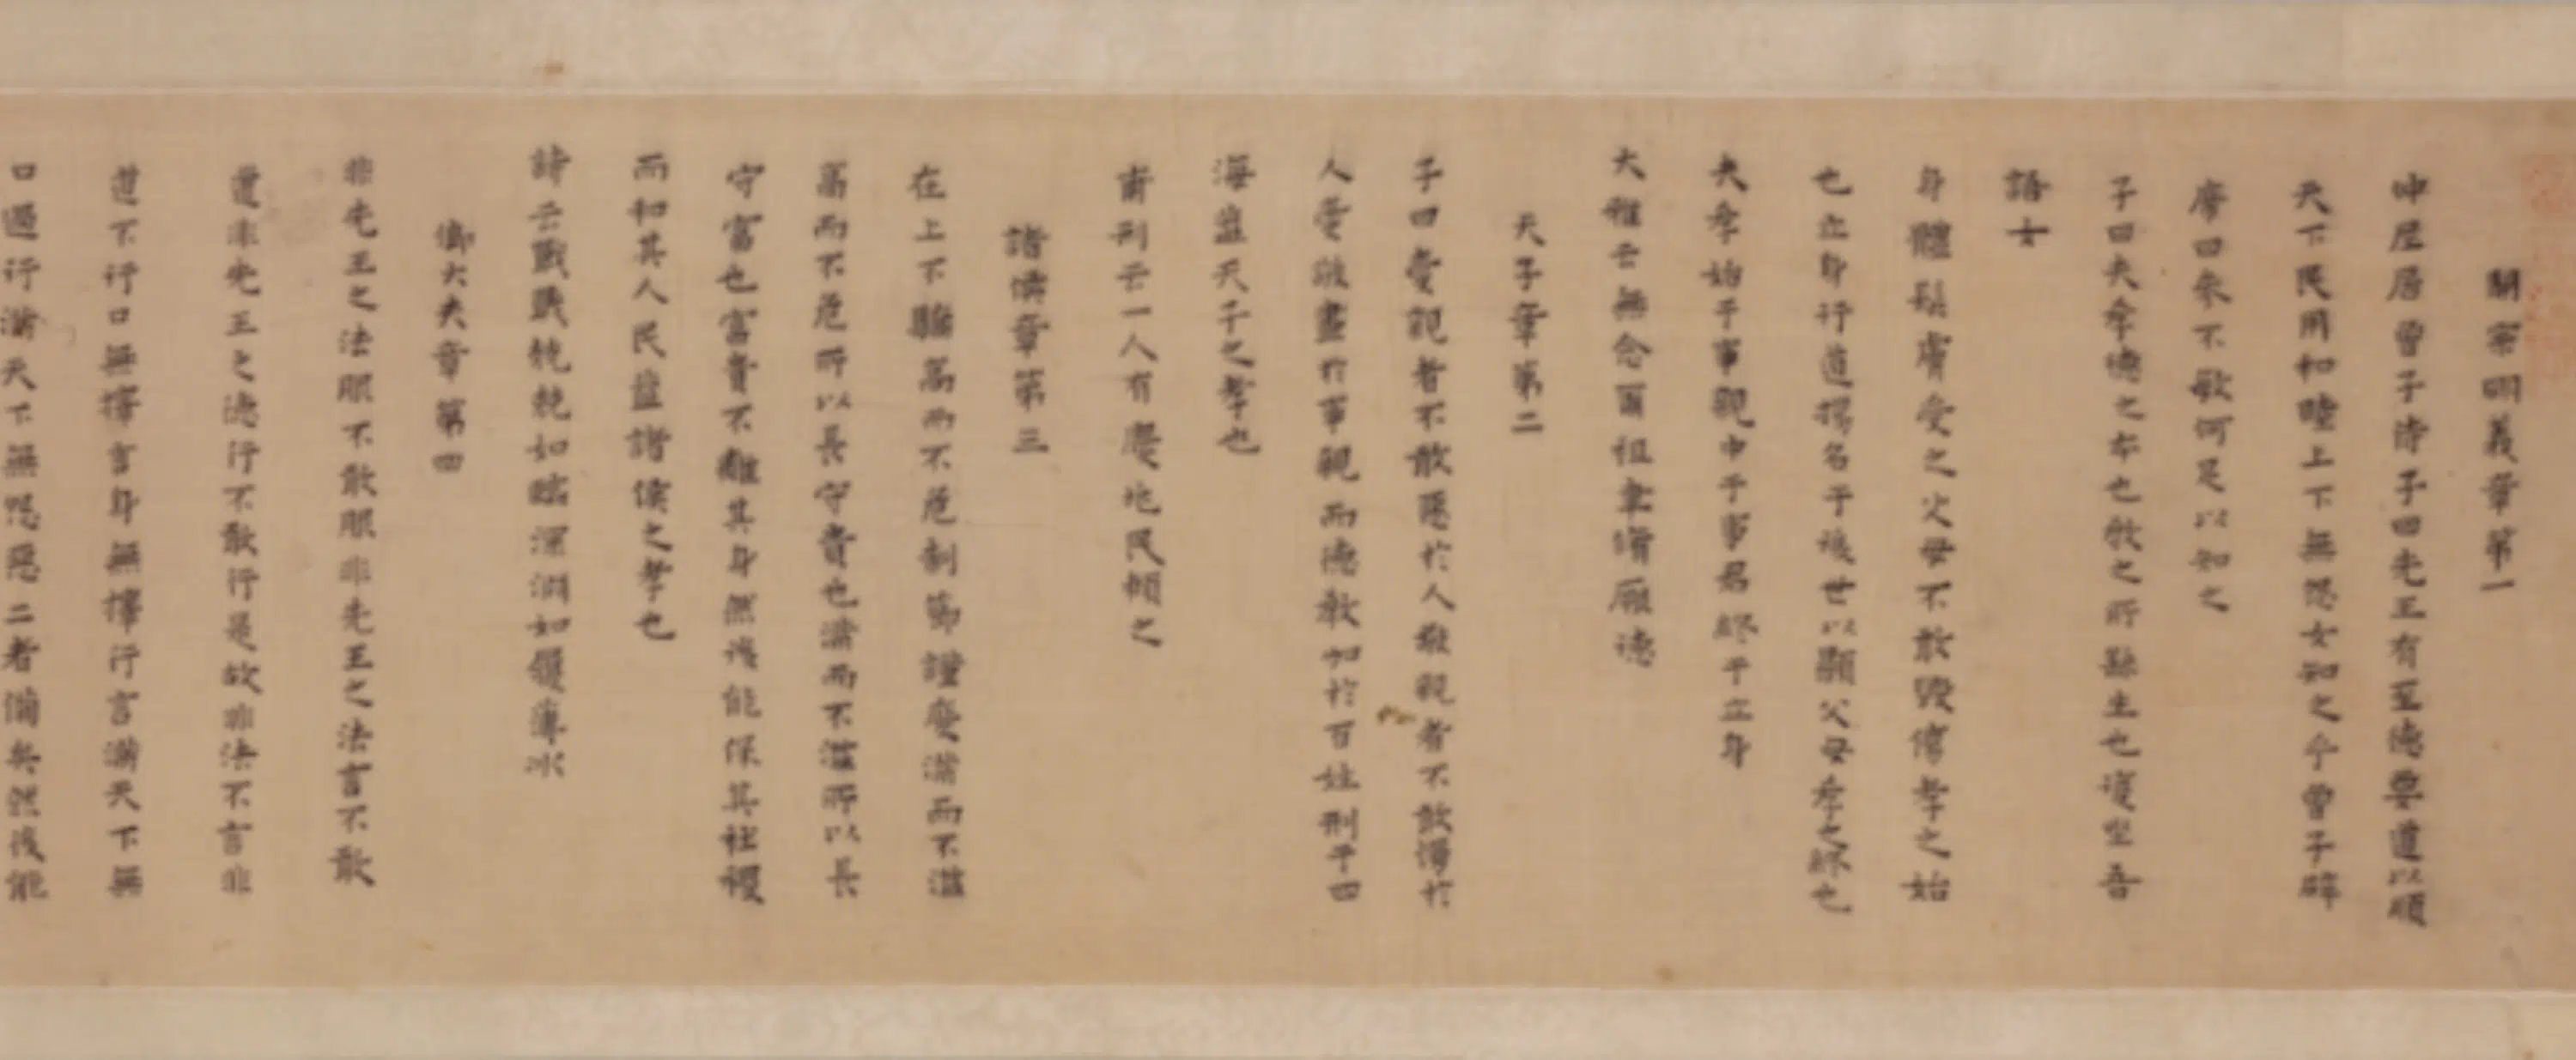 開宗明義章第一
仲尼居曾子侍子曰先王有至德要道以順
天下民用和睦上下無怨女知之乎曾子辟
席曰參不敏何足以知之
子曰夫孝德之本也教之所繇生也復坐吾
語女
身體髮膚受之父母不敢毀傷孝之始
也立身行道揚名于後世以顯父母孝之終也
夫孝始于事親中于事君終于立身
大雅云無念爾祖聿脩厥德
天子章第二
子曰愛親者不敢惡於人敬親者不敢慢於
人愛敬盡於事親而德教加於百姓刑于四
海蓋天子之孝也
甫刑云一人有慶兆民賴之
諸侯章第三
在上不驕高而不危制節謹度滿而不溢
高而不危所以長守貴也滿而不溢所以長
守富也富貴不離其身然後能保其社稷
而和其人民蓋諸侯之孝也
詩云戰戰兢兢如臨深淵如履薄冰
卿大夫章第四
非先王之法服不敢服非先王之法言不敢
道非先王之德行不敢行是故非法不言非
道不行口無擇言身無擇行言滿天下無
口過行滿天下無怨惡三者備矣然後能